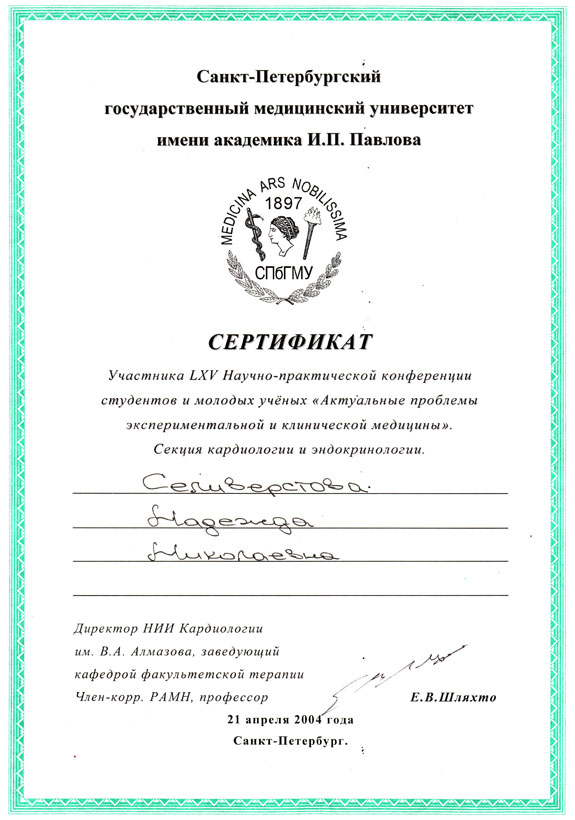 Санкт-Петербургский
государственный медицинский университет
имени академика И.П. Павлова
MEDICINA ARS NOBILISSIMA
1897
СПбГМУ
СЕРТИФИКАТ
Участника LXV Научно-практической конференции
студентов и молодых учёных «Актуальные проблемы
экспериментальной и клинической медицины».
Секция кардиологии и эндокринологии.
Селиверстова
Надежда
Николаевна
Директор НИИ Кардиологии
им. В.А. Алмазова, заведующий
кафедрой факультетской терапии
Член-корр. РАМН, профессор
Е.В.Шляхто
21 апреля 2004 года
Санкт-Петербург.